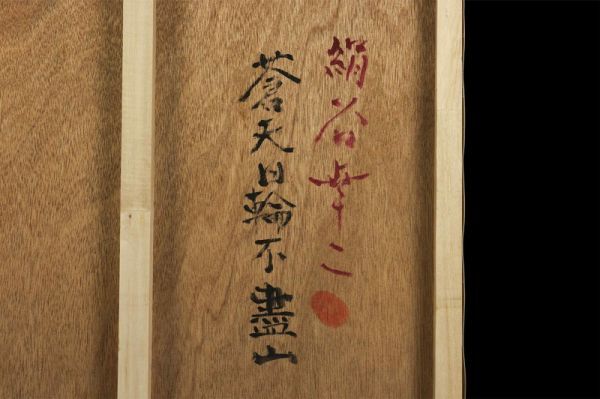 絹谷幸二
蒼天日輪不盡山